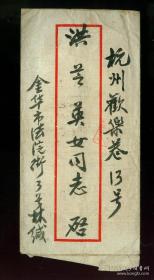 杭州歡樂巷13号
洪芸英女同志 启
金华市法院街3号林缄